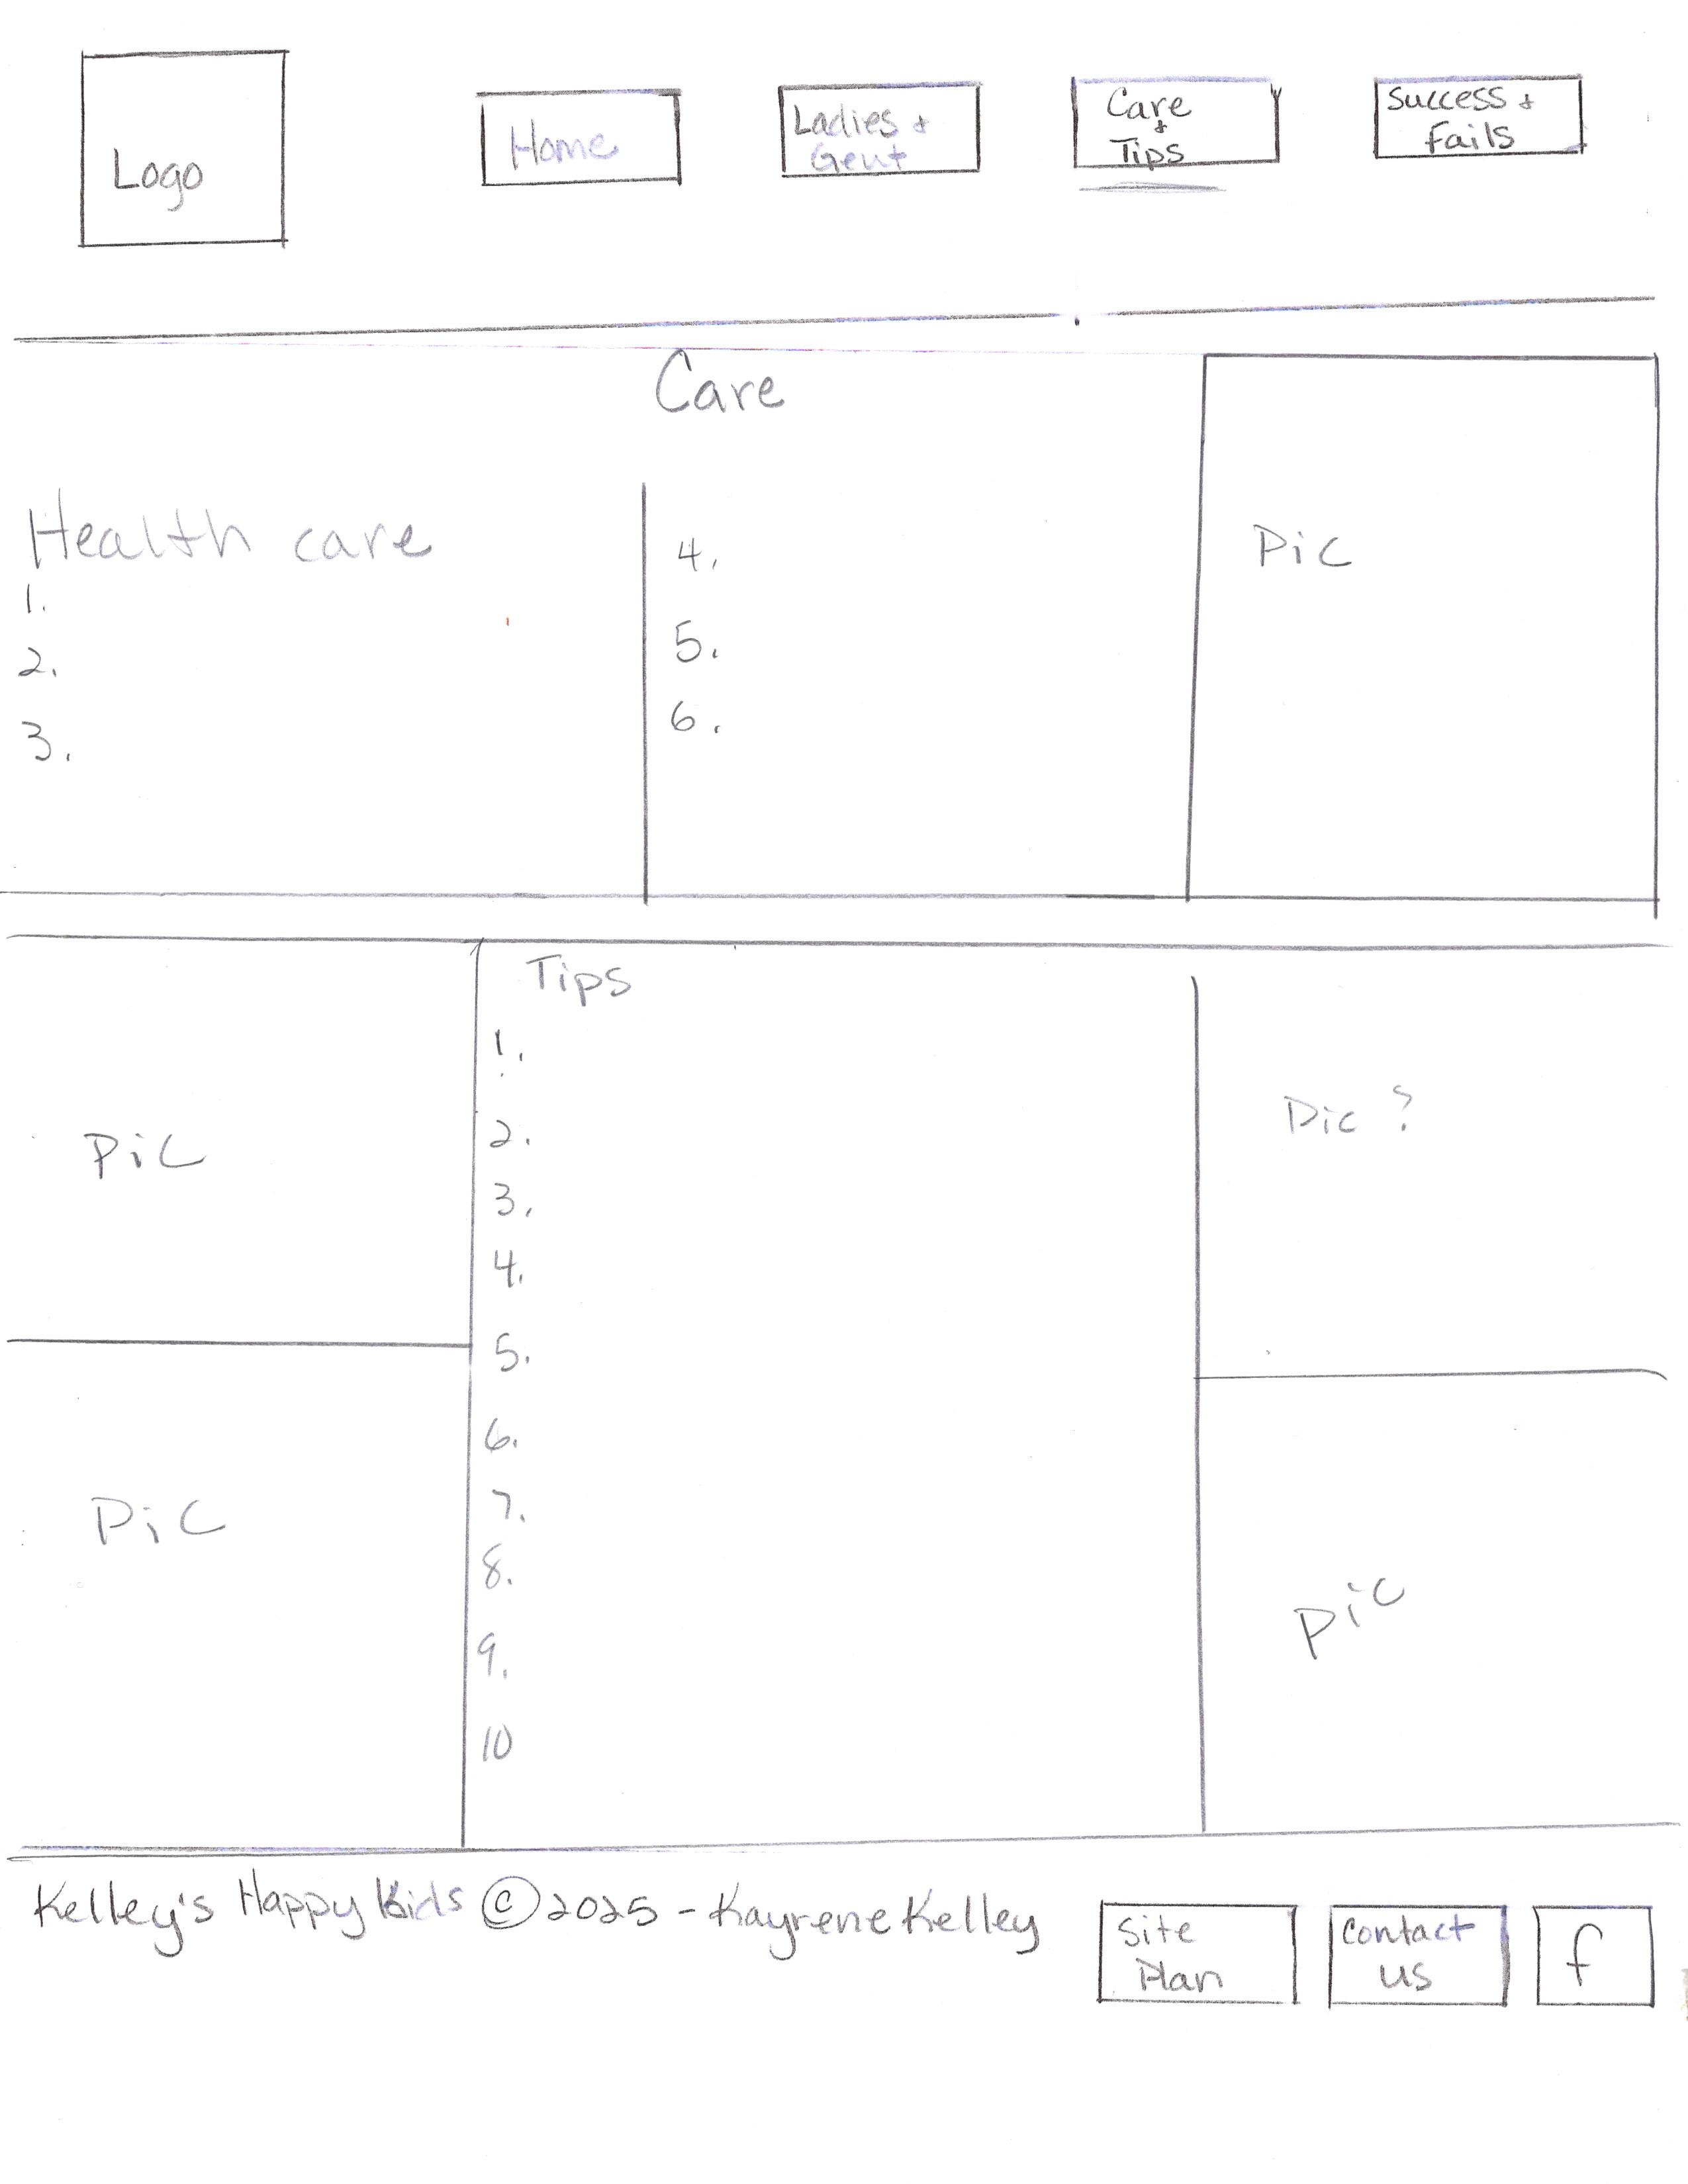 Logo
Home
Ladies +
Gent
Care
+
Tips
Success +
Fails
Care
Health care
1.
2.
3.
4.
5.
6.
Pic
Tips
1.
2.
3.
4.
5.
6.
7.
8.
9.
10
Pic
Pic
Pic ?
Pic
Kelley's Happy Kids © 2025 - Kayrene Kelley
Site
Plan
Contact
us
f